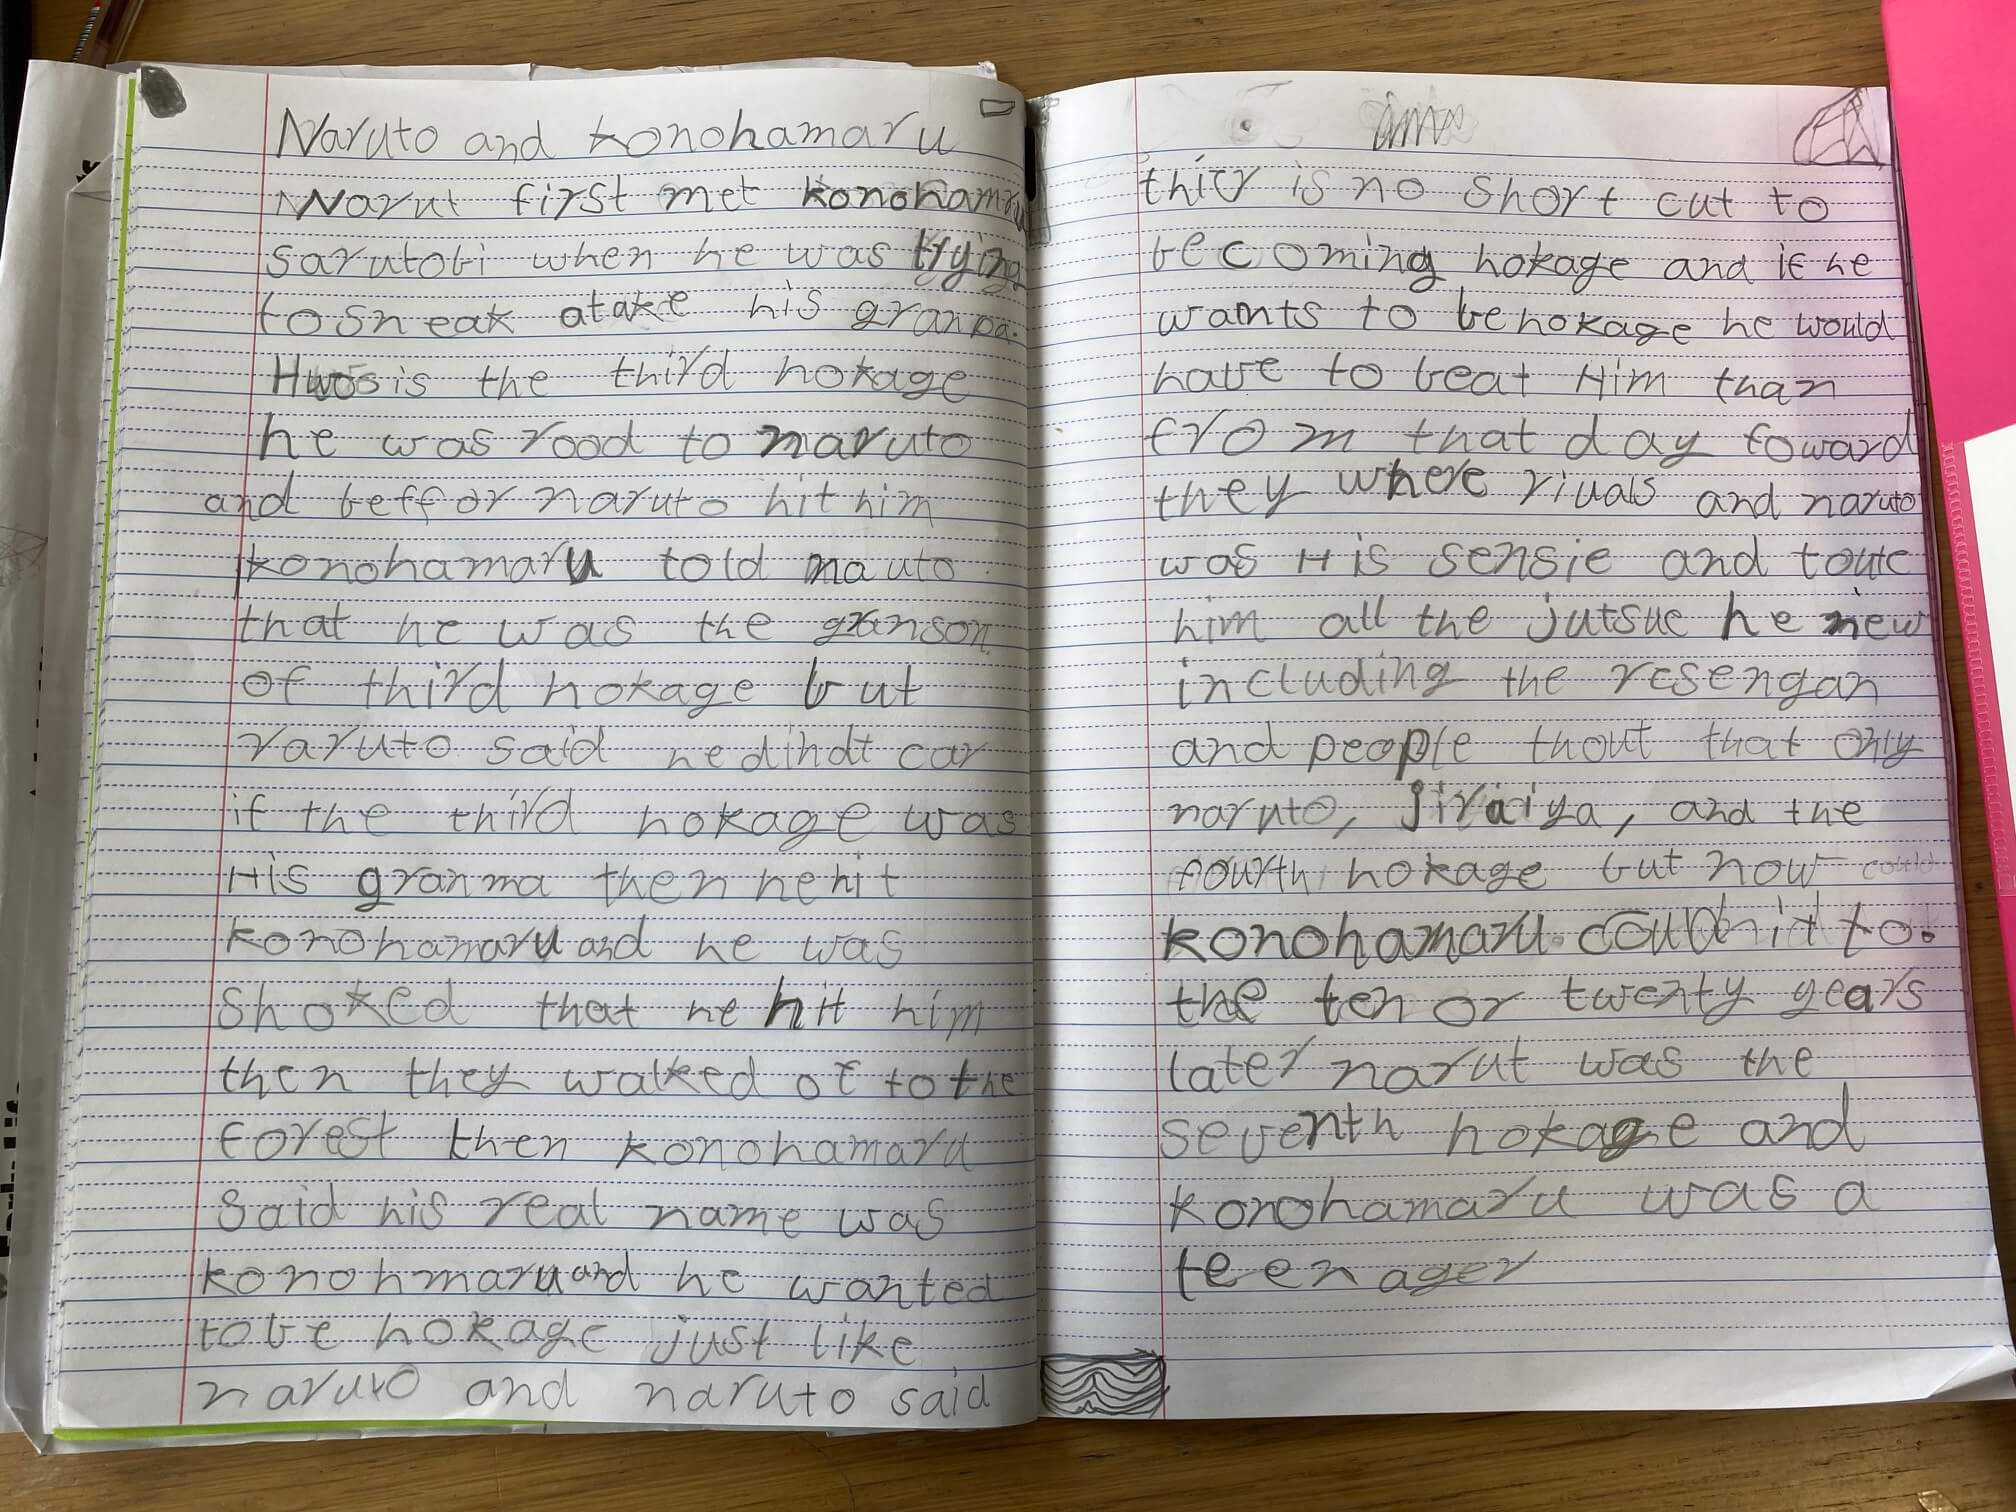 Naruto and konohamaru
Narut first met konohamru
sarutobi when he was trying
to sneak atake his granpa.
Hwos is the third hokage
he was rood to naruto
and beffor naruto hit him
konohamaru told nauto
that he was the granson
of third hokage but
naruto said he dindt car
if the third hokage was
His granma then he hit
konohamaru and he was
shoked that he hit him
then they walked of to the
forest then konohamaru
said his real name was
konohmaru and he wanted
to be hokage just like
naruto and naruto said
thier is no short cut to
becoming hokage and if he
wants to be hokage he would
have to beat Him than
from that day foward
they where rivals and naruto
was His sensie and toute
him all the jutsue he niew
including the resengan
and people thout that only
naruto, jiraiya, and the
fourth hokage but now could
konohamaru could hit to.
the ten or twenty years
later narut was the
seventh hokage and
konohamaru was a
teenager